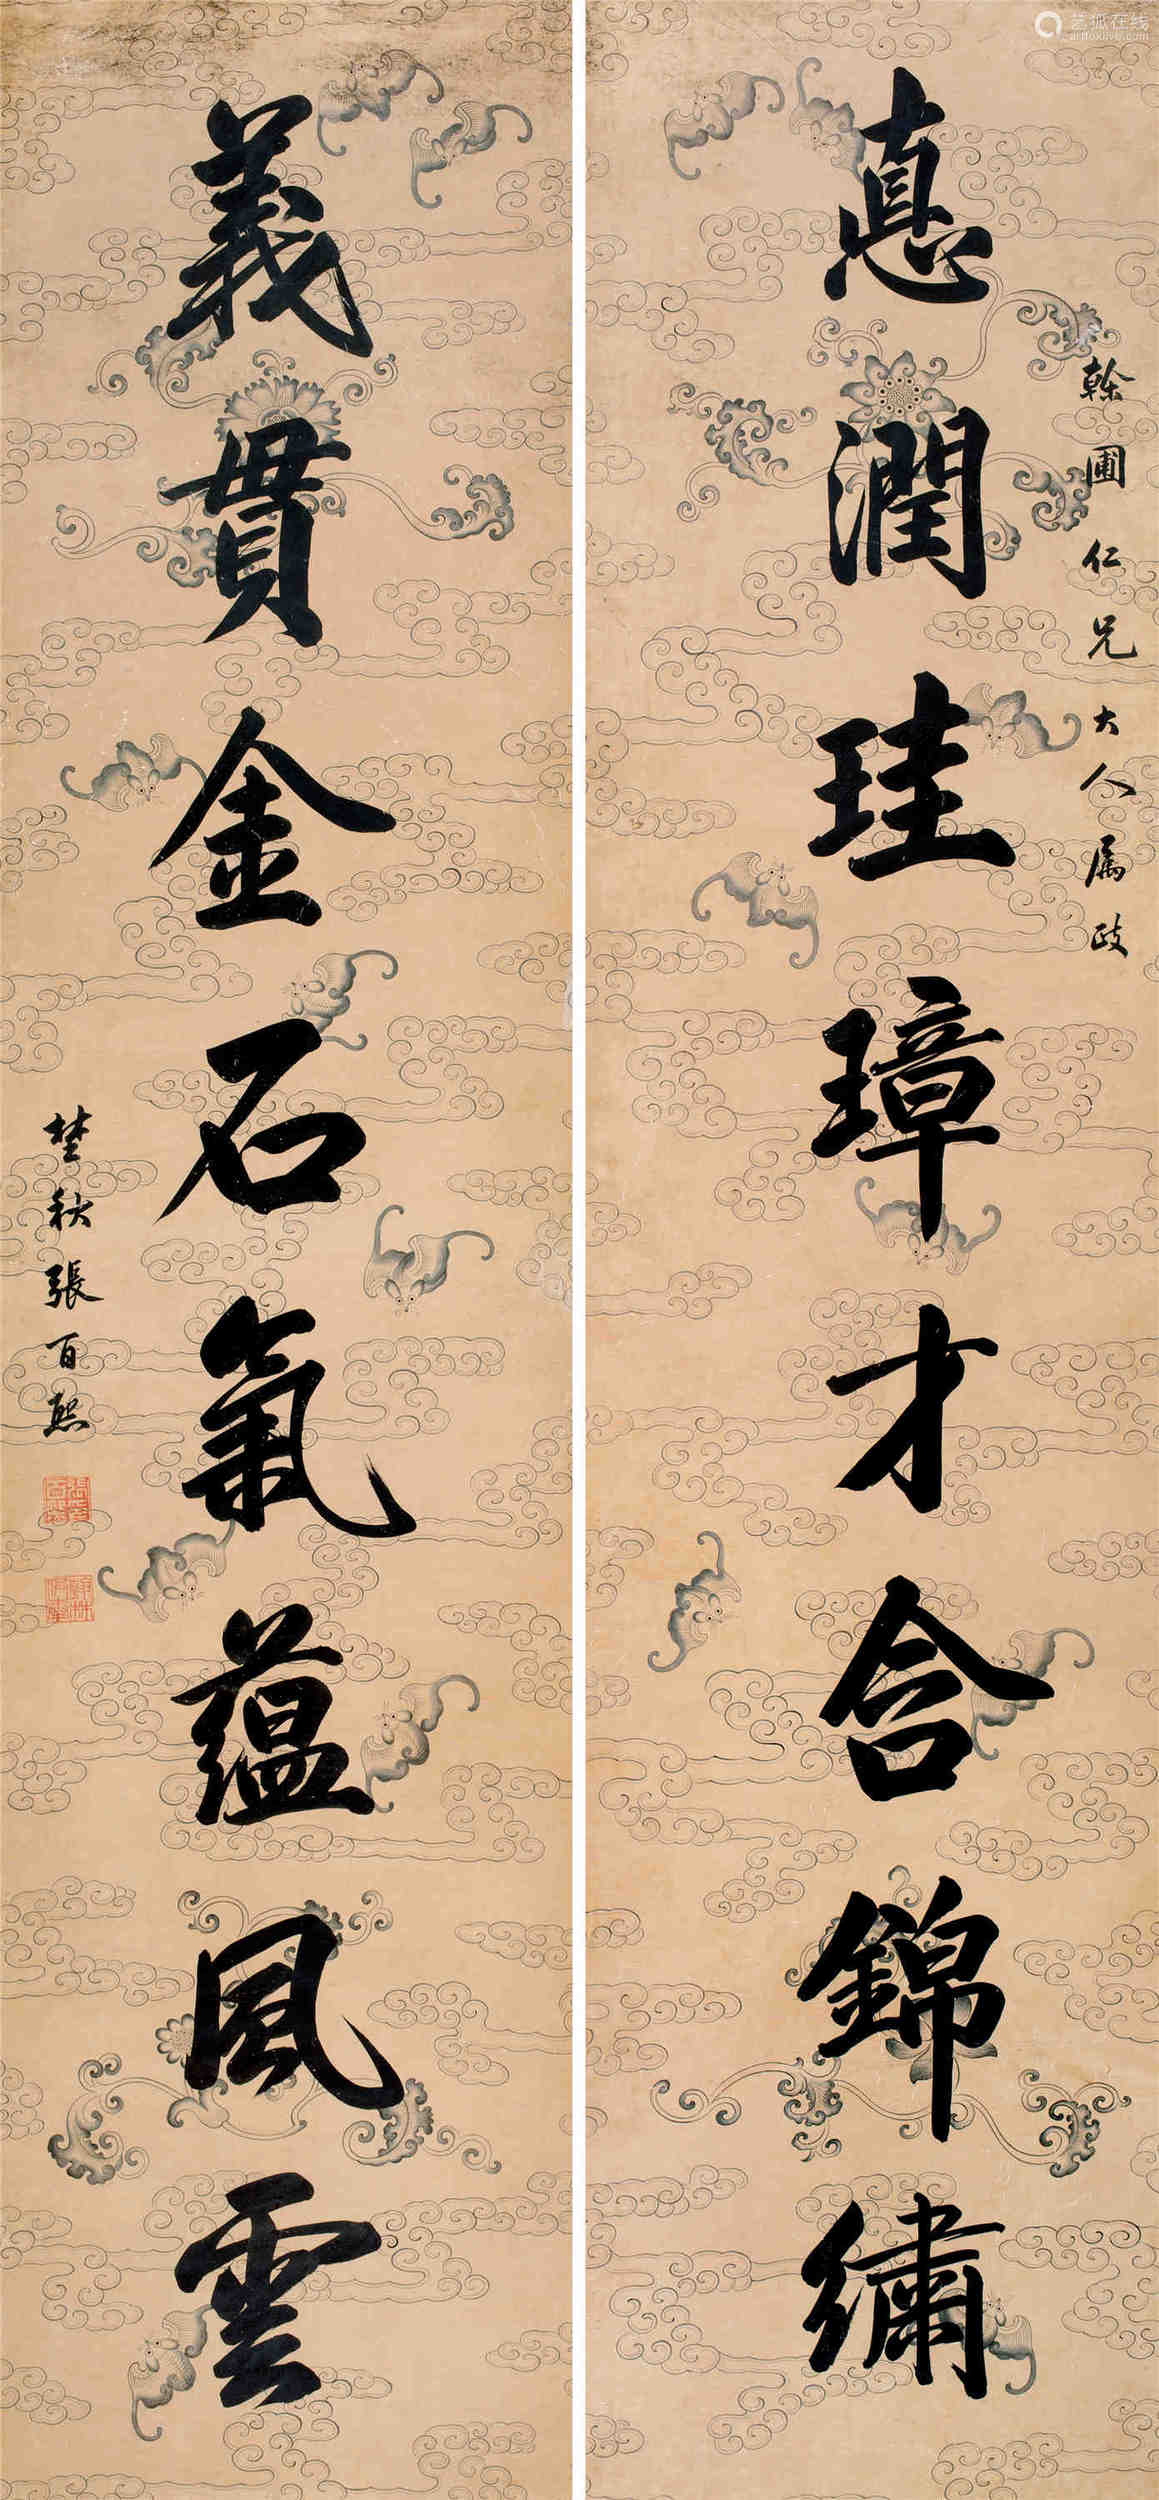 艺狐在线
artfoxlive.com
榦圃仁兄大人属政
悳潤珪璋才含錦繡
義貫金石氣蘊風雲
埜秋張百熙